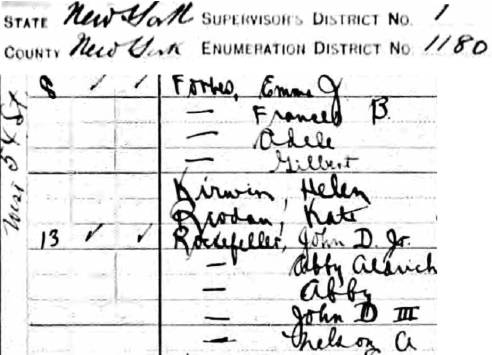 STATE New York SUPERVISOR'S DISTRICT No. 1
COUNTY New York ENUMERATION DISTRICT No. 1180
8 ✓ ✓ Forbes, Emma J
— Frances B.
— Adele
— Gilbert
Kirwin, Helen
Riodan, Kate
13 ✓ ✓ Rockefeller, John D. Jr.
— Abby Aldrich
— Abby
— John D III
— Nelson A
West 54 St.